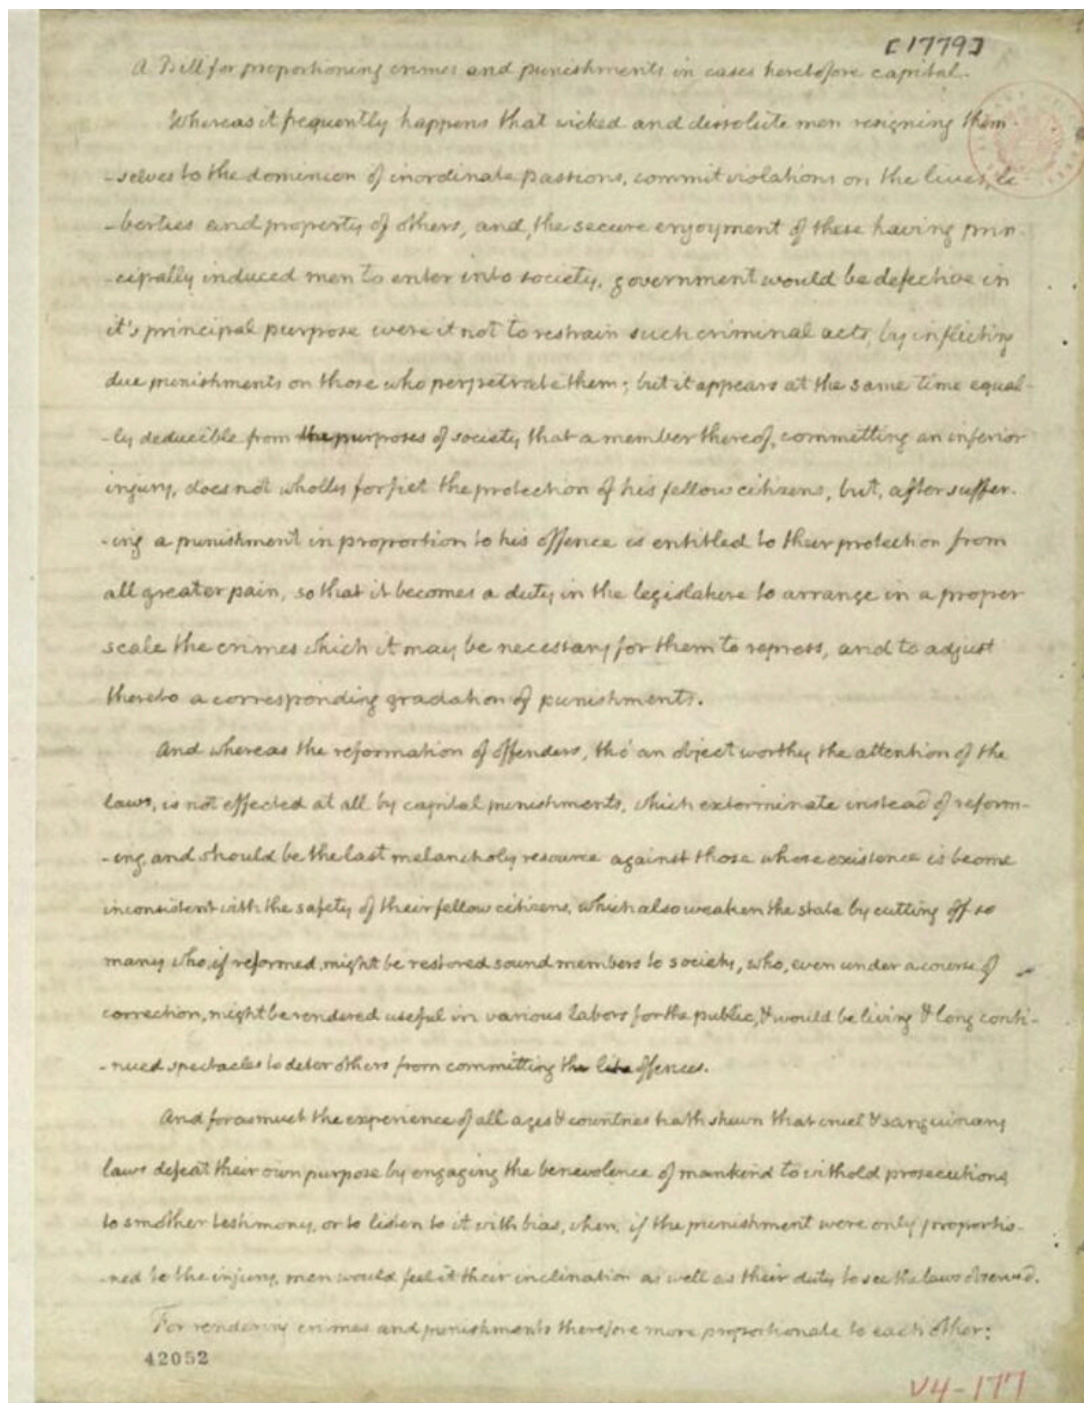 [1779]
A Bill for proportioning crimes and punishments in cases heretofore capital.
Whereas it frequently happens that wicked and dissolute men resigning them-
-selves to the dominion of inordinate passions, commit violations on the lives, li-
-berties and property of others, and, the secure enjoyment of these having prin-
-cipally induced men to enter into society, government would be defective in
it's principal purpose were it not to restrain such criminal acts, by inflicting
due punishments on those who perpetrate them; but it appears at the same time equal-
-ly deducible from the purposes of society that a member thereof, committing an inferior
injury, does not wholly forfiet the protection of his fellow citizens, but, after suffer-
-ing a punishment in proportion to his offence is entitled to their protection from
all greater pain, so that it becomes a duty in the legislature to arrange in a proper
scale the crimes which it may be necessary for them to repress, and to adjust
thereto a corresponding gradation of punishments.
And whereas the reformation of offenders, tho' an object worthy the attention of the
laws, is not effected at all by capital punishments, which exterminate instead of reform-
-ing, and should be the last melancholy resource against those whose existence is become
inconsistent with the safety of their fellow citizens, which also weaken the state by cutting off so
many who, if reformed, might be restored sound members to society, who, even under a course of
correction, might be rendered useful in various labors for the public, & would be living & long conti-
-nued spectacles to deter others from committing the like offences.
And forasmuch the experience of all ages & countries hath shewn that cruel & sanguinary
laws defeat their own purpose by engaging the benevolence of mankind to withold prosecutions,
to smother testimony, or to listen to it with bias, when, if the punishment were only proportio-
-ned to the injury, men would feel it their inclination as well as their duty to see the laws observed.
For rendering crimes and punishments therefore more proportionate to each other:
42052
V4-177